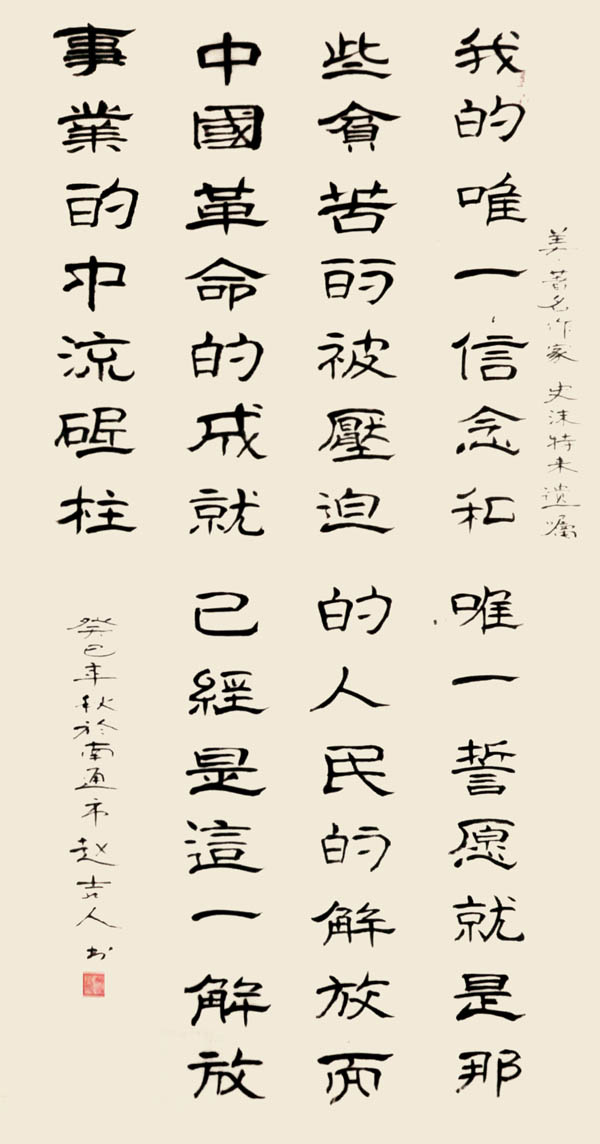 美·著名作家 史沫特来遗嘱
我的唯一信念和 唯一誓愿就是那
些貧苦的被壓迫 的人民的解放而
中國革命的成就 已經是這一解放
事業的中流砥柱
癸巳年秋於南通市赵吉人书